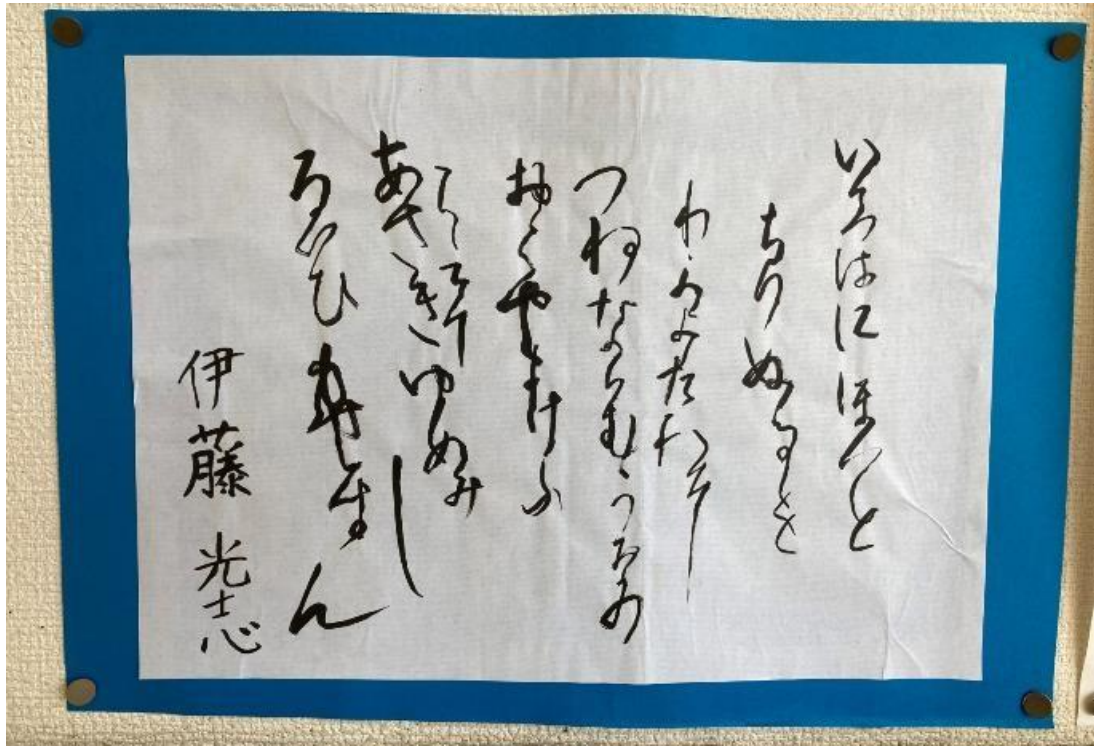 いろはにほへと
ちりぬるを
わかよたれそ
つねならむうゐの
おくやまけふ
こえて
あさきゆめみし
ゑひもせすん
伊藤 光志